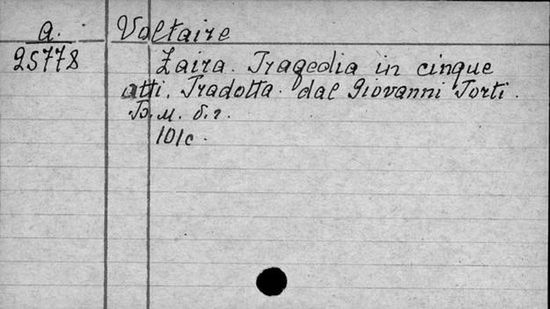 A. Voltaire
25778 Zaira. Tragedia in cinque
atti. Tradotta dal Giovanni Torti.
Б.м. б.г.
101c.